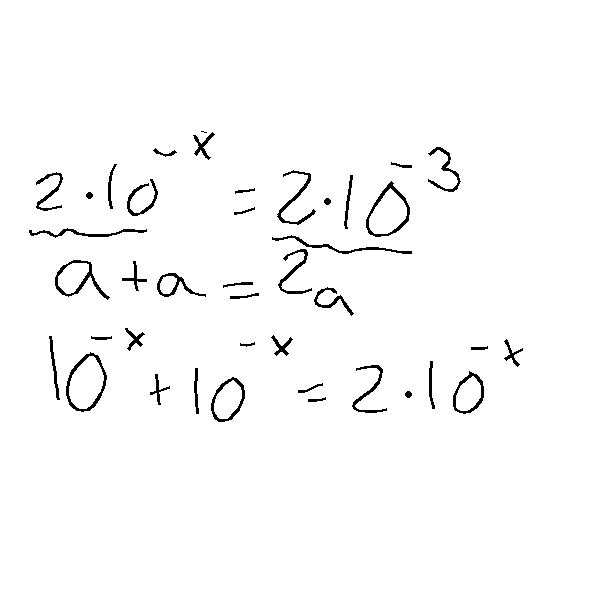 2·10^{-x} = 2·10^{-3}
a+a=2a
10^{-x} + 10^{-x} = 2·10^{-x}